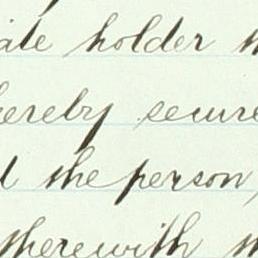 ate holder
hereby secure
the person,
therewith